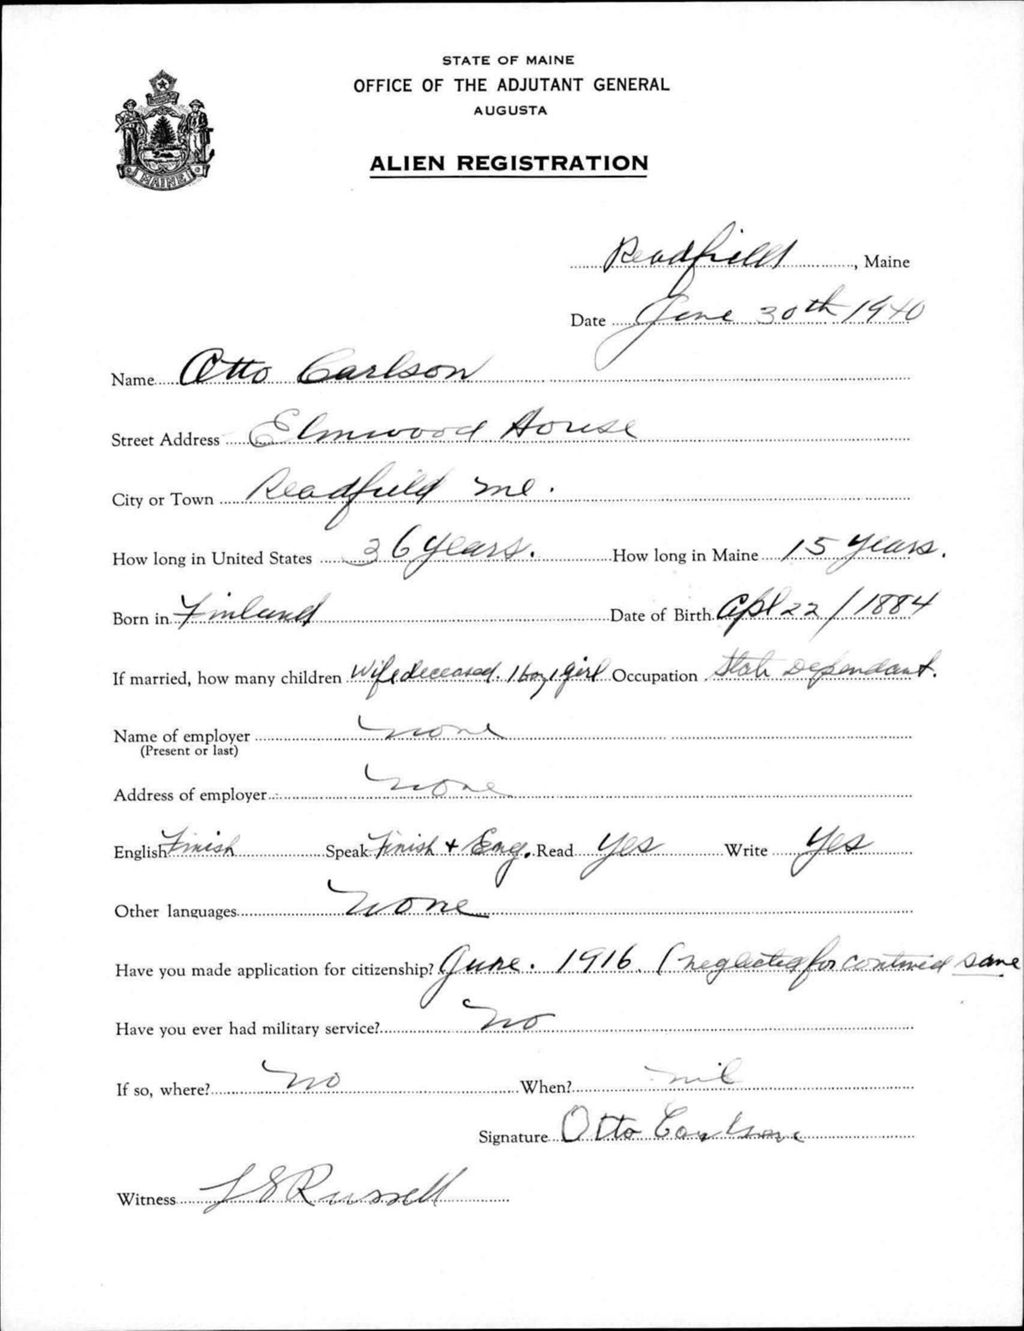 STATE OF MAINE
OFFICE OF THE ADJUTANT GENERAL
AUGUSTA
ALIEN REGISTRATION
MAINE
Readfield, Maine
Date June 30th 1940
Name Otto Carlson
Street Address Elmwood House
City or Town Readfield Me.
How long in United States 36 years. How long in Maine 15 years.
Born in Finland Date of Birth Apl 22 / 1884
If married, how many children Wife deceased. 1 boy 1 girl Occupation State Dependant.
Name of employer none
(Present or last)
Address of employer none
English Finish Speak Finish + Eng. Read Yes Write Yes
Other languages None
Have you made application for citizenship? June. 1916. (neglected for same
Have you ever had military service? No
If so, where? no When? nil
Signature Otto Carlson
Witness L S Russell